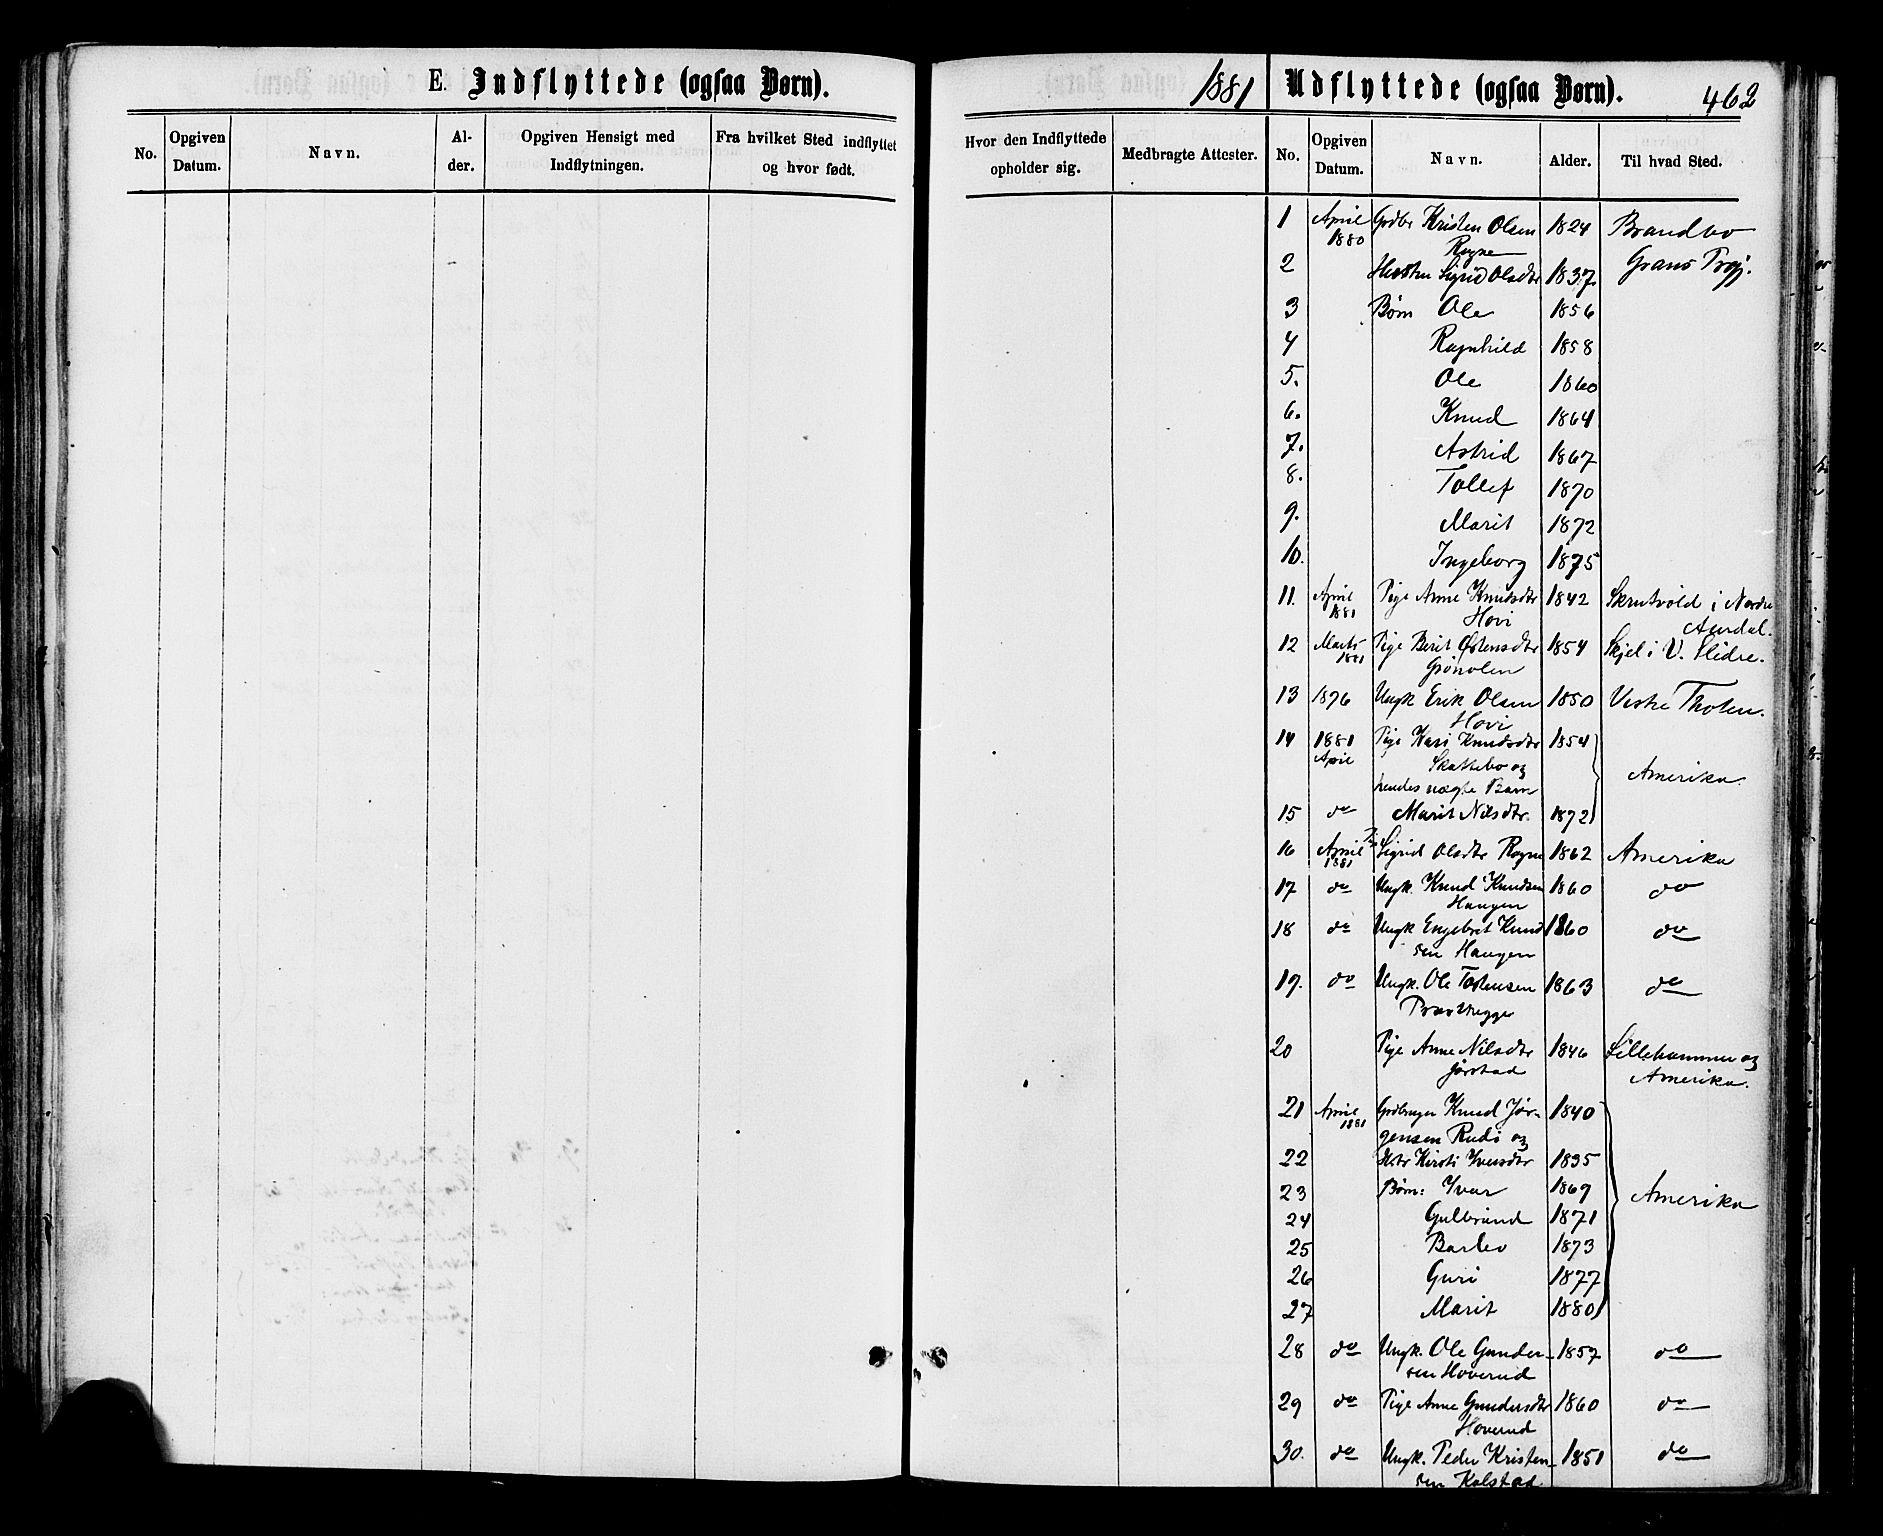 E. Indflyttede (ogsaa Børn).
No.
Opgiven Datum.
Navn.
Al-
der.
Opgiven Hensigt med
Indflytningen.
Fra hvilket Sted indflyttet
og hvor født.
1881
Udflyttede (ogsaa Børn).
462
Hvor den Indflyttede
opholder sig.
Medbragte Attester.
No.
Opgiven
Datum.
Navn.
Alder.
Til hvad Sted.
1 April Grdbr Kristen Olsen 1824 Brandbo
1880 Rogne Grans Prgj.
2 Hustru Sigrid Olsdtr 1837
3 Børn Ole 1856
4 Ragnhild 1858
5. Ole 1860
6. Knud 1864
7. Astrid 1867
8. Tollef 1870
9. Marit 1872
10. Ingeborg 1875
11. April Pige Anne Knudsdtr 1842 Skrutvold i Nordre
1881 Hovi Aurdal.
12 Marts Pige Berit Østensdtr 1854 Skjel i V. Slidre.
1881 Grønolen
13 1876 Ungk Erik Olsen 1850 Vestre Thoten.
Hovi
14 1881 Pige Kari Knudsdtr 1854
April Skattebo og Amerika.
hendes uægte Barn
15 do Marit Nilsdtr. 1872
16 April Sigrid Olsdtr Rogne 1862 Amerika
1881
17 do Ungk. Knud Knudsen 1860 do
Haugen
18 do Ungk Engebret Knud 1860 do
sen Haugen
19. do Ungk. Ole Tostensen 1863 do
20 Pige Anne Nilsdtr 1846 Lillehammer og
Jørstad Amerika.
21 April Grdbruger Knud Jør- 1840
1881 gensen Rudi og
22 Hstr Kirsti Iversdtr 1835
23 Børn: Ivar 1869 Amerika
24 Gulbrand 1871
25 Barbo 1873
26 Guri 1877
27 Marit 1880
28 do Ungk. Ole Gunder- 1857 do
sen Hoverud
29 do Pige Anne Gundersdtr 1860 do
Hoverud
30. do Ungk. Peder Kristen- 1851 do
sen Kolstad